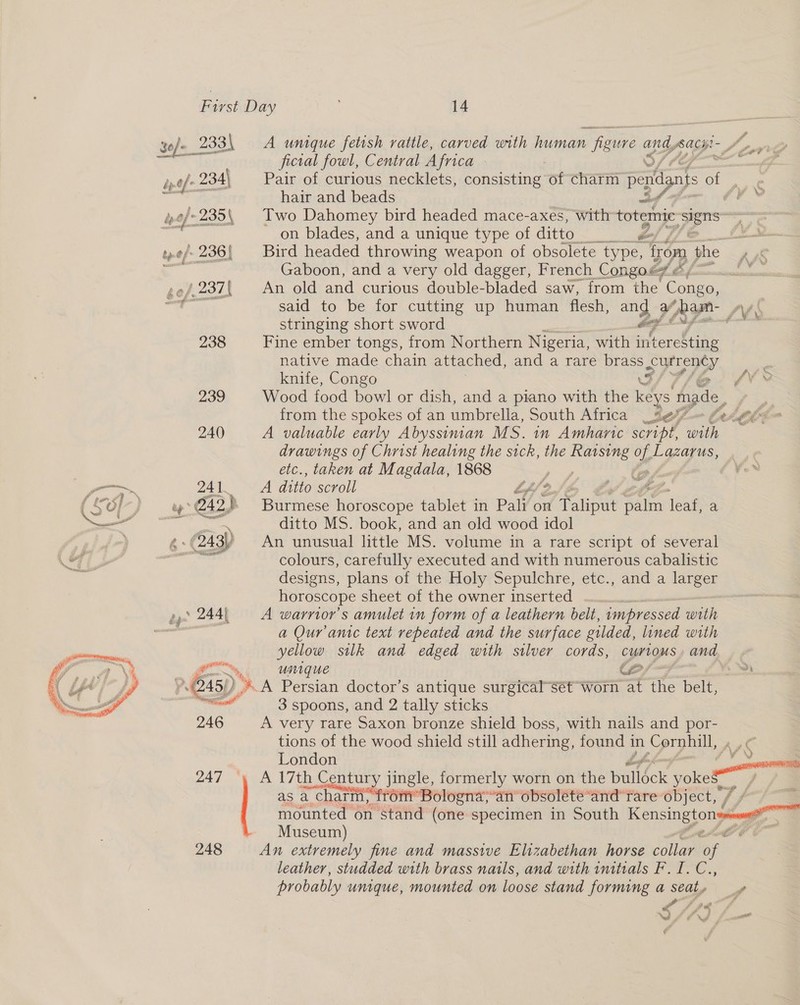 First Day 14
233 A unique fetish rattle, carved with human figure and sacri-
ficial fowl, Central Africa
234 Pair of curious necklets, consisting of charm pendants of
hair and beads
235 Two Dahomey bird headed mace-axes, with totemic signs
on blades, and a unique type of ditto
236 Bird headed throwing weapon of obsolete type, from the
Gaboon, and a very old dagger, French Congo
237 An old and curious double-bladed saw, from the Congo,
said to be for cutting up human flesh, and a ham-
stringing short sword
238 Fine ember tongs, from Northern Nigeria, with interesting
native made chain attached, and a rare brass currency
knife, Congo
239 Wood food bowl or dish, and a piano with the keys made
from the spokes of an umbrella, South Africa
240 A valuable early Abyssinian MS. in Amharic script, with
drawings of Christ healing the sick, the Raising of Lazarus,
etc., taken at Magdala, 1868
241 A ditto scroll
242 Burmese horoscope tablet in Pali on Taliput palm leaf, a
ditto MS. book, and an old wood idol
243 An unusual little MS. volume in a rare script of several
colours, carefully executed and with numerous cabalistic
designs, plans of the Holy Sepulchre, etc., and a larger
horoscope sheet of the owner inserted
244 A warrior's amulet in form of a leathern belt, impressed with
a Qur'anic text repeated and the surface gilded, lined with
yellow silk and edged with silver cords, curious and
unique
245 A Persian doctor's antique surgical set worn at the belt,
3 spoons, and 2 tally sticks
246 A very rare Saxon bronze shield boss, with nails and por-
tions of the wood shield still adhering, found in Cornhill,
London
247 A 17th Century jingle, formerly worn on the bullock yokes
as a charm, from Bologna, an obsolete and rare object,
mounted on stand (one specimen in South Kensington
Museum)
248 An extremely fine and massive Elizabethan horse collar of
leather, studded with brass nails, and with initials F. I. C.,
probably unique, mounted on loose stand forming a seat,